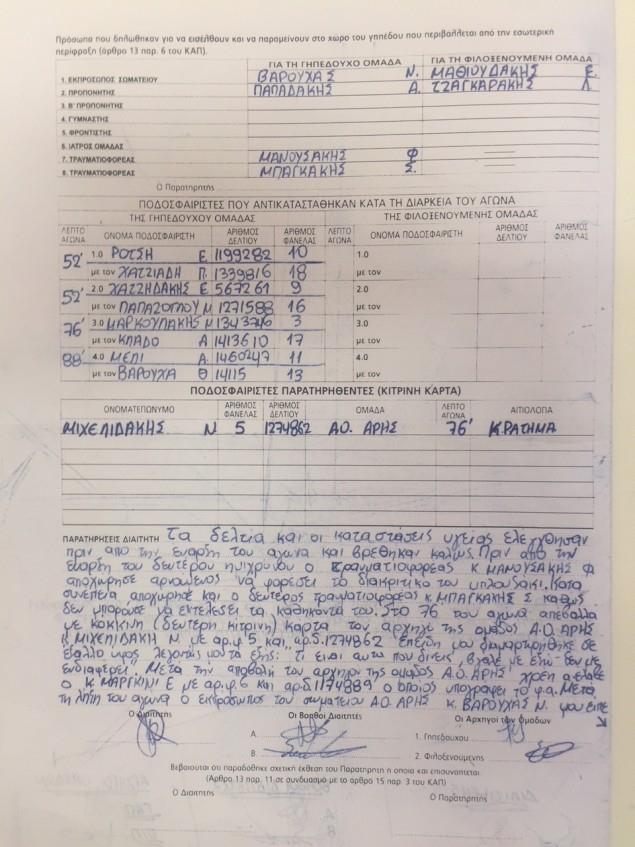 Πρόσωπα που δηλώθηκαν για να εισέλθουν και να παραμείνουν στο χώρο του γηπέδου που περιβάλλεται από την εσωτερική
περίφραξη (άρθρο 13 παρ. 6 του ΚΑΠ).
ΓΙΑ ΤΗ ΓΗΠΕΔΟΥΧΟ ΟΜΑΔΑ ΓΙΑ ΤΗ ΦΙΛΟΞΕΝΟΥΜΕΝΗ ΟΜΑΔΑ
1. ΕΚΠΡΟΣΩΠΟΣ ΣΩΜΑΤΕΙΟΥ ΒΑΡΟΥΧΑΣ Ν. ΜΑΘΙΟΥΔΑΚΗΣ Ε.
2. ΠΡΟΠΟΝΗΤΗΣ ΠΑΠΑΔΑΚΗΣ Α. ΤΖΑΓΚΑΡΑΚΗΣ Λ
3. Β' ΠΡΟΠΟΝΗΤΗΣ
4. ΓΥΜΝΑΣΤΗΣ
5. ΦΡΟΝΤΙΣΤΗΣ
6. ΙΑΤΡΟΣ ΟΜΑΔΑΣ
7. ΤΡΑΥΜΑΤΙΟΦΟΡΕΑΣ ΜΑΝΟΥΣΑΚΗΣ Φ
8. ΤΡΑΥΜΑΤΙΟΦΟΡΕΑΣ ΜΠΑΓΚΑΚΗΣ Σ.
Ο Παρατηρητής
ΠΟΔΟΣΦΑΙΡΙΣΤΕΣ ΠΟΥ ΑΝΤΙΚΑΤΑΣΤΑΘΗΚΑΝ ΚΑΤΑ ΤΗ ΔΙΑΡΚΕΙΑ ΤΟΥ ΑΓΩΝΑ
ΤΗΣ ΓΗΠΕΔΟΥΧΟΥ ΟΜΑΔΑΣ ΤΗΣ ΦΙΛΟΞΕΝΟΥΜΕΝΗΣ ΟΜΑΔΑΣ
ΛΕΠΤΟ ΑΓΩΝΑ ΟΝΟΜΑ ΠΟΔΟΣΦΑΙΡΙΣΤΗ ΑΡΙΘΜΟΣ ΔΕΛΤΙΟΥ ΑΡΙΘΜΟΣ ΦΑΝΕΛΑΣ ΛΕΠΤΟ ΑΓΩΝΑ ΟΝΟΜΑ ΠΟΔΟΣΦΑΙΡΙΣΤΗ ΑΡΙΘΜΟΣ ΔΕΛΤΙΟΥ ΑΡΙΘΜΟΣ ΦΑΝΕΛΑΣ
52' 1.Ο ΡΟΤΣΗ Ε 1199282 10 1.Ο
με τον ΧΑΤΖΙΑΔΗ Π. 1339816 18 με τον
52' 2.Ο ΧΑΤΖΗΔΑΚΗΣ Ε 567261 9 2.Ο
με τον ΠΑΠΑΖΟΓΛΟΥ Μ 1271588 16 με τον
76' 3.Ο ΜΑΡΚΟΥΛΑΚΗΣ Μ 3 3.Ο
με τον ΚΛΑΔΟ Α 1413610 17 με τον
88' 4.Ο ΜΕΛΙ Α. 1460247 11 4.Ο
με τον ΒΑΡΟΥΧΑ Θ 14115 13 με τον
ΠΟΔΟΣΦΑΙΡΙΣΤΕΣ ΠΑΡΑΤΗΡΗΘΕΝΤΕΣ (ΚΙΤΡΙΝΗ ΚΑΡΤΑ)
ΟΝΟΜΑΤΕΠΩΝΥΜΟ ΑΡΙΘΜΟΣ ΦΑΝΕΛΑΣ ΑΡΙΘΜΟΣ ΔΕΛΤΙΟΥ ΟΜΑΔΑ ΛΕΠΤΟ ΑΓΩΝΑ ΑΙΤΙΟΛΟΓΙΑ
ΜΙΧΕΛΙΔΑΚΗΣ Ν 5 1274862 ΑΟ. ΑΡΗΣ 76' ΚΡΑΤΗΜΑ
ΠΑΡΑΤΗΡΗΣΕΙΣ ΔΙΑΙΤΗΤΗ Τα δελτία και οι καταστάσεις υγείας ελεγχθησαν
πριν από την έναρξη του αγώνα και βρέθηκαν καλώς. Πριν από την
έναρξη του δευτέρου ημιχρόνου ο τραυματιοφορέας κ. ΜΑΝΟΥΣΑΚΗΣ Φ
αποχώρησε αρνούμενος να φορέσει το διακριτικό του μπλουζάκι. Κατά
συνέπεια αποχώρησε και ο δεύτερος τραυματιοφορέας κ. ΜΠΑΓΚΑΚΗΣ Σ καθώς
δεν μπορούσε να εκτελέσει τα καθήκοντά του. Στο 76 του αγώνα απέβαλα
με κόκκινη (δεύτερη κίτρινη) κάρτα τον αρχηγό της ομάδος Α.Ο ΑΡΗΣ
κ ΜΙΧΕΛΙΔΑΚΗ Ν με αρ.φ 5 και αρ.δ. 1274862 Επειδή μου διαμαρτυρήθηκε σε
έξαλλο ύφος λέγοντάς μου τα εξής: τι είναι αυτό που δίνεις, βγάλε με έξω δεν με
ενδιαφέρει". Μετά την αποβολή του αρχηγού της ομάδος Α.Ο ΑΡΗΣ χρέη ανέλαβε
ο κ ΜΑΡΓΚΙΝΙ Ε με αρ.φ.6 και αρ.δ 1174889 ο οποίος υπογράφει το φ.α. Μετά
τη λήξη του αγώνα ο εκπρόσωπος του σωματείου ΑΟ. ΑΡΗΣ κ. ΒΑΡΟΥΧΑΣ Ν. μου είπε
Ο Διαιτητής Οι Βοηθοί Διαιτητές Οι Αρχηγοί των Ομάδων
Α. 1. Γηπεδούχου
Β. 2. Φιλοξενούμενης
Βεβαιούται ότι παραδόθηκε σχετική έκθεση του Παρατηρητή η οποία και επισυνάπτεται
(Άρθρο 13 παρ. 11 σε συνδυασμό με το άρθρο 15 παρ. 3 του ΚΑΠ)
Ο Διαιτητής Ο Παρατηρητής